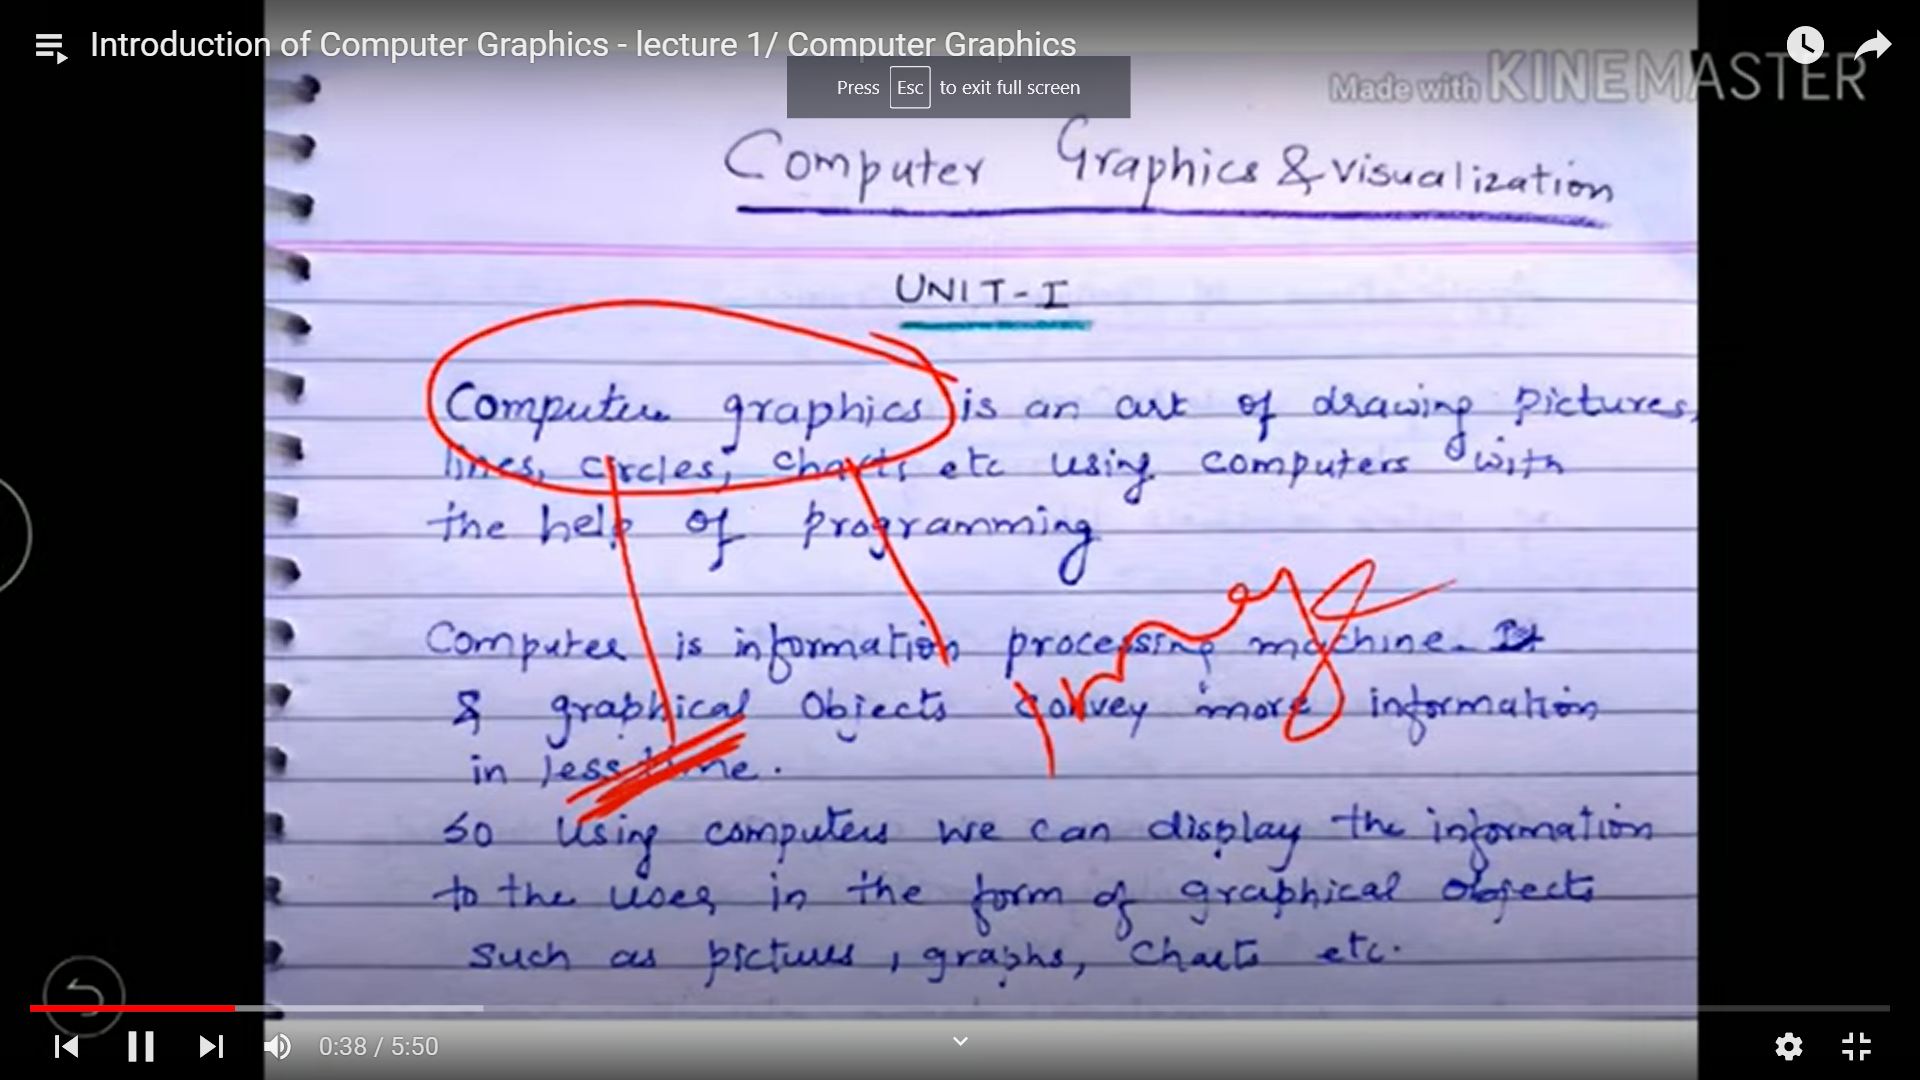 Introduction of Computer Graphics - lecture 1/ Computer Graphics
Press Esc to exit full screen
Made with KINEMASTER
Computer Graphics & visualization
UNIT-I
Computer graphics is an art of drawing pictures,
lines, circles, charts etc using computers with
the help of programming
Computer is information processing machine. It
& graphical objects convey more information
in less time.
so using computers we can display the information
to the user in the form of graphical objects
such as pictures, graphs, charts etc.
image
0:38 / 5:50